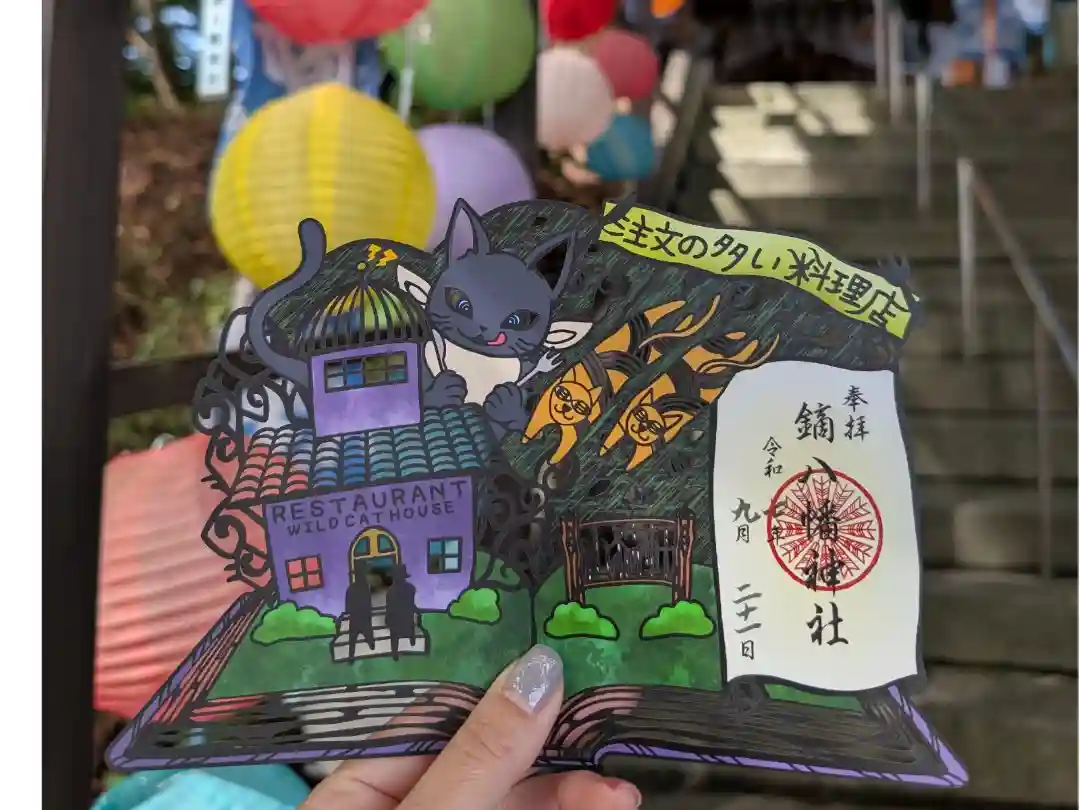 注文の多い料理店
RESTAURANT
WILDCATHOUSE
奉拝
鏑八幡神社
令和七年
九月二十一日